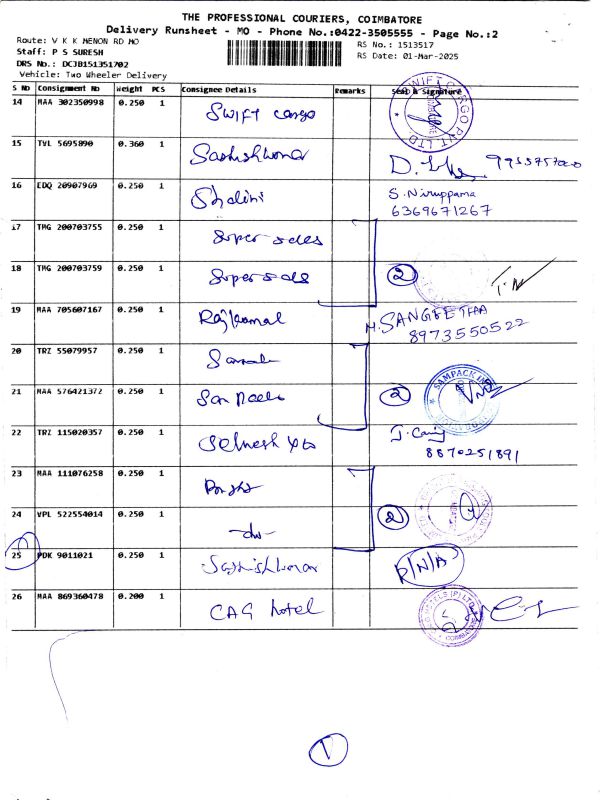 THE PROFESSIONAL COURIERS, COIMBATORE
Delivery Runsheet - MO - Phone No.:0422-3505555 - Page No.:2
Route: V K K MENON RD MO
Staff: P S SURESH
DRS No.: DCJB151351702
Vehicle: Two Wheeler Delivery
RS No.: 1513517
RS Date: 01-Mar-2025
S No Consignment No Weight PCS Consignee Details Remarks Seal & Signature
14 MAA 302350998 0.250 1 Swift cargo
SWIFT CARGO PVT LTD
15 TVL 5695890 0.360 1
16 EDQ 20907969 0.250 1 Shalini S. Niruppama
6369671267
17 TMG 200703755 0.250 1 Super sales
18 TMG 200703759 0.250 1 Super sales 2
19 MAA 705607167 0.250 1 Rajkamal SANGEETHAA
8973550522
20 TRZ 55079957 0.250 1
21 MAA 576421372 0.250 1 2
SAMPACK
22 TRZ 115020357 0.250 1
8870251891
23 MAA 111076258 0.250 1
24 VPL 522554014 0.250 1 -do- 2
25 PDK 9011021 0.250 1 R/N/A
26 MAA 869360478 0.200 1 CAG hotel
1